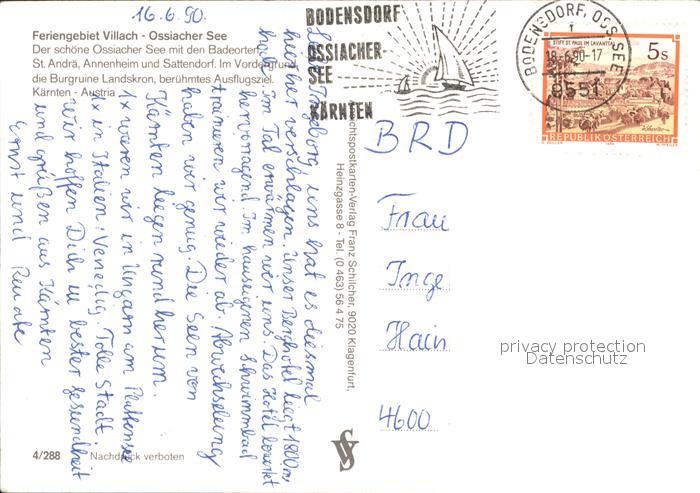 16.6.90.
Feriengebiet Villach - Ossiacher See
Der schöne Ossiacher See mit den Badeorten
St. Andrä, Annenheim und Sattendorf. Im Vordergrund
die Burgruine Landskron, berühmtes Ausflugsziel.
Kärnten - Austria
Liebe Ingeborg, uns hat es diesmal
hierher verschlagen. Unser Berghotel liegt 1800m
hoch, im Tal erwärmen wir uns. Das Hotel kocht
hervorragend. Im hauseigenen Schwimmbad
trainieren wir wieder ab. Abwechselung
haben wir genug. Die Seen von
Kärnten liegen rund herum.
1x waren wir in Ungarn am Plattensee
1x in Italien: Venedig. Tolle Stadt.
Wir hoffen Dich in bester Gesundheit
und grüßen aus Kärnten
Ernst und Renate
4/288 Nachdruck verboten
Franz Schilcher, 9020 Klagenfurt,
Heinzgasse 8 - Tel. (0 463) 56 4 75
BODENSDORF
OSSIACHER-
SEE
KÄRNTEN
BODENSDORF, OSS. SEE
18.-6.90-17
9551
STIFT ST. PAUL IM LAVANTTAL
5s
REPUBLIK ÖSTERREICH
BRD
Frau
Inge
Hain
4600
privacy protection
Datenschutz